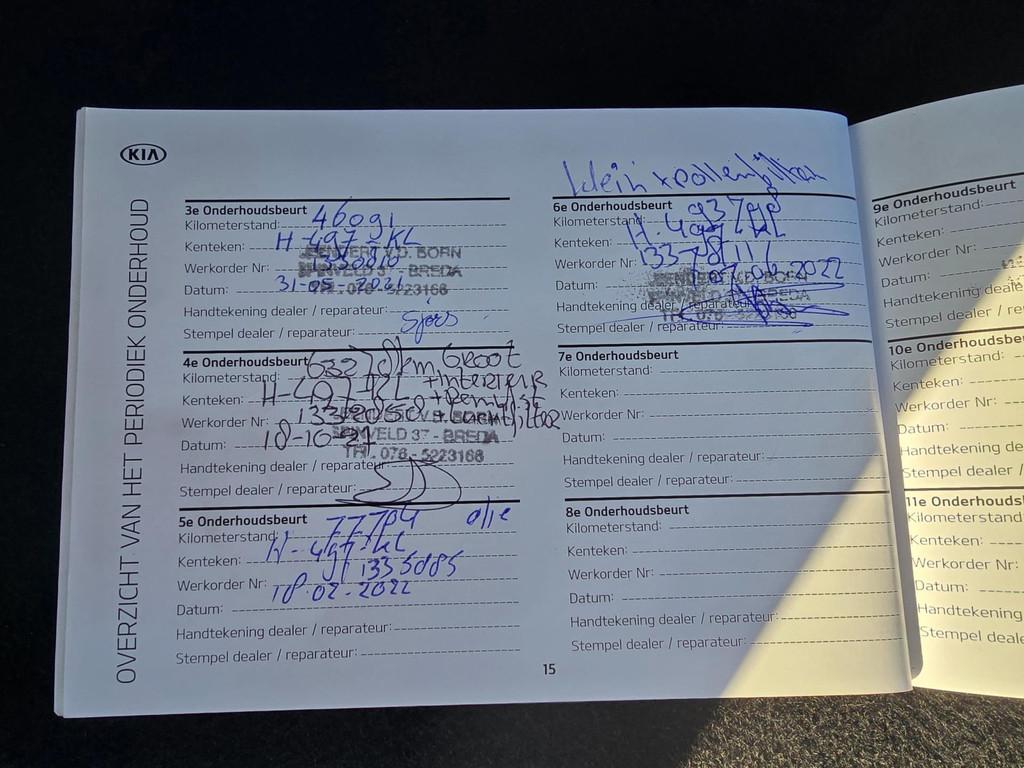 KIA
OVERZICHT VAN HET PERIODIEK ONDERHOUD
3e Onderhoudsbeurt
Kilometerstand: 46091
Kenteken: H-497-KL
Werkorder Nr: 1330810
V.D. BORN
SPINVELD 37 - BREDA
Datum: 31-05-2021
TEL. 076-5223168
Handtekening dealer / reparateur:
Stempel dealer / reparateur: Sjors
4e Onderhoudsbeurt
Kilometerstand: Groot
Kenteken: H-497-KL +Interieur
Werkorder Nr:
V.D. BORN
SPINVELD 37 - BREDA
Datum: 18-10-21
TEL. 076-5223168
Handtekening dealer / reparateur:
Stempel dealer / reparateur:
5e Onderhoudsbeurt
olie
Kilometerstand: 77704
Kenteken: H-497-KL
Werkorder Nr: 1335085
18-02-2022
Datum:
Handtekening dealer / reparateur:
Stempel dealer / reparateur:
klein + pollenfilter
6e Onderhoudsbeurt
Kilometerstand:
Kenteken: H-497-KL
Werkorder Nr: 13378116
V.D. BORN
Datum: 07.06.2022
SPINVELD BREDA
Handtekening dealer / reparateur:
TEL. 076-5223168
Stempel dealer / reparateur:
7e Onderhoudsbeurt
Kilometerstand:
Kenteken:
Werkorder Nr:
Datum:
Handtekening dealer / reparateur:
Stempel dealer / reparateur:
8e Onderhoudsbeurt
Kilometerstand:
Kenteken:
Werkorder Nr:
Datum:
Handtekening dealer / reparateur:
Stempel dealer / reparateur:
15
9e Onderhoudsbeurt
Kilometerstand:
Kenteken:
Werkorder Nr:
Datum:
Handtekening deale
Stempel dealer /
10e Onderhoudsbe
Kilometerstand:
Kenteken:
Werkorder Nr:
Datum:
Handtekening de
Stempel dealer /
11e Onderhouds
Kilometerstand
Kenteken:
Werkorder Nr:
Datum:
Handtekening
Stempel deale